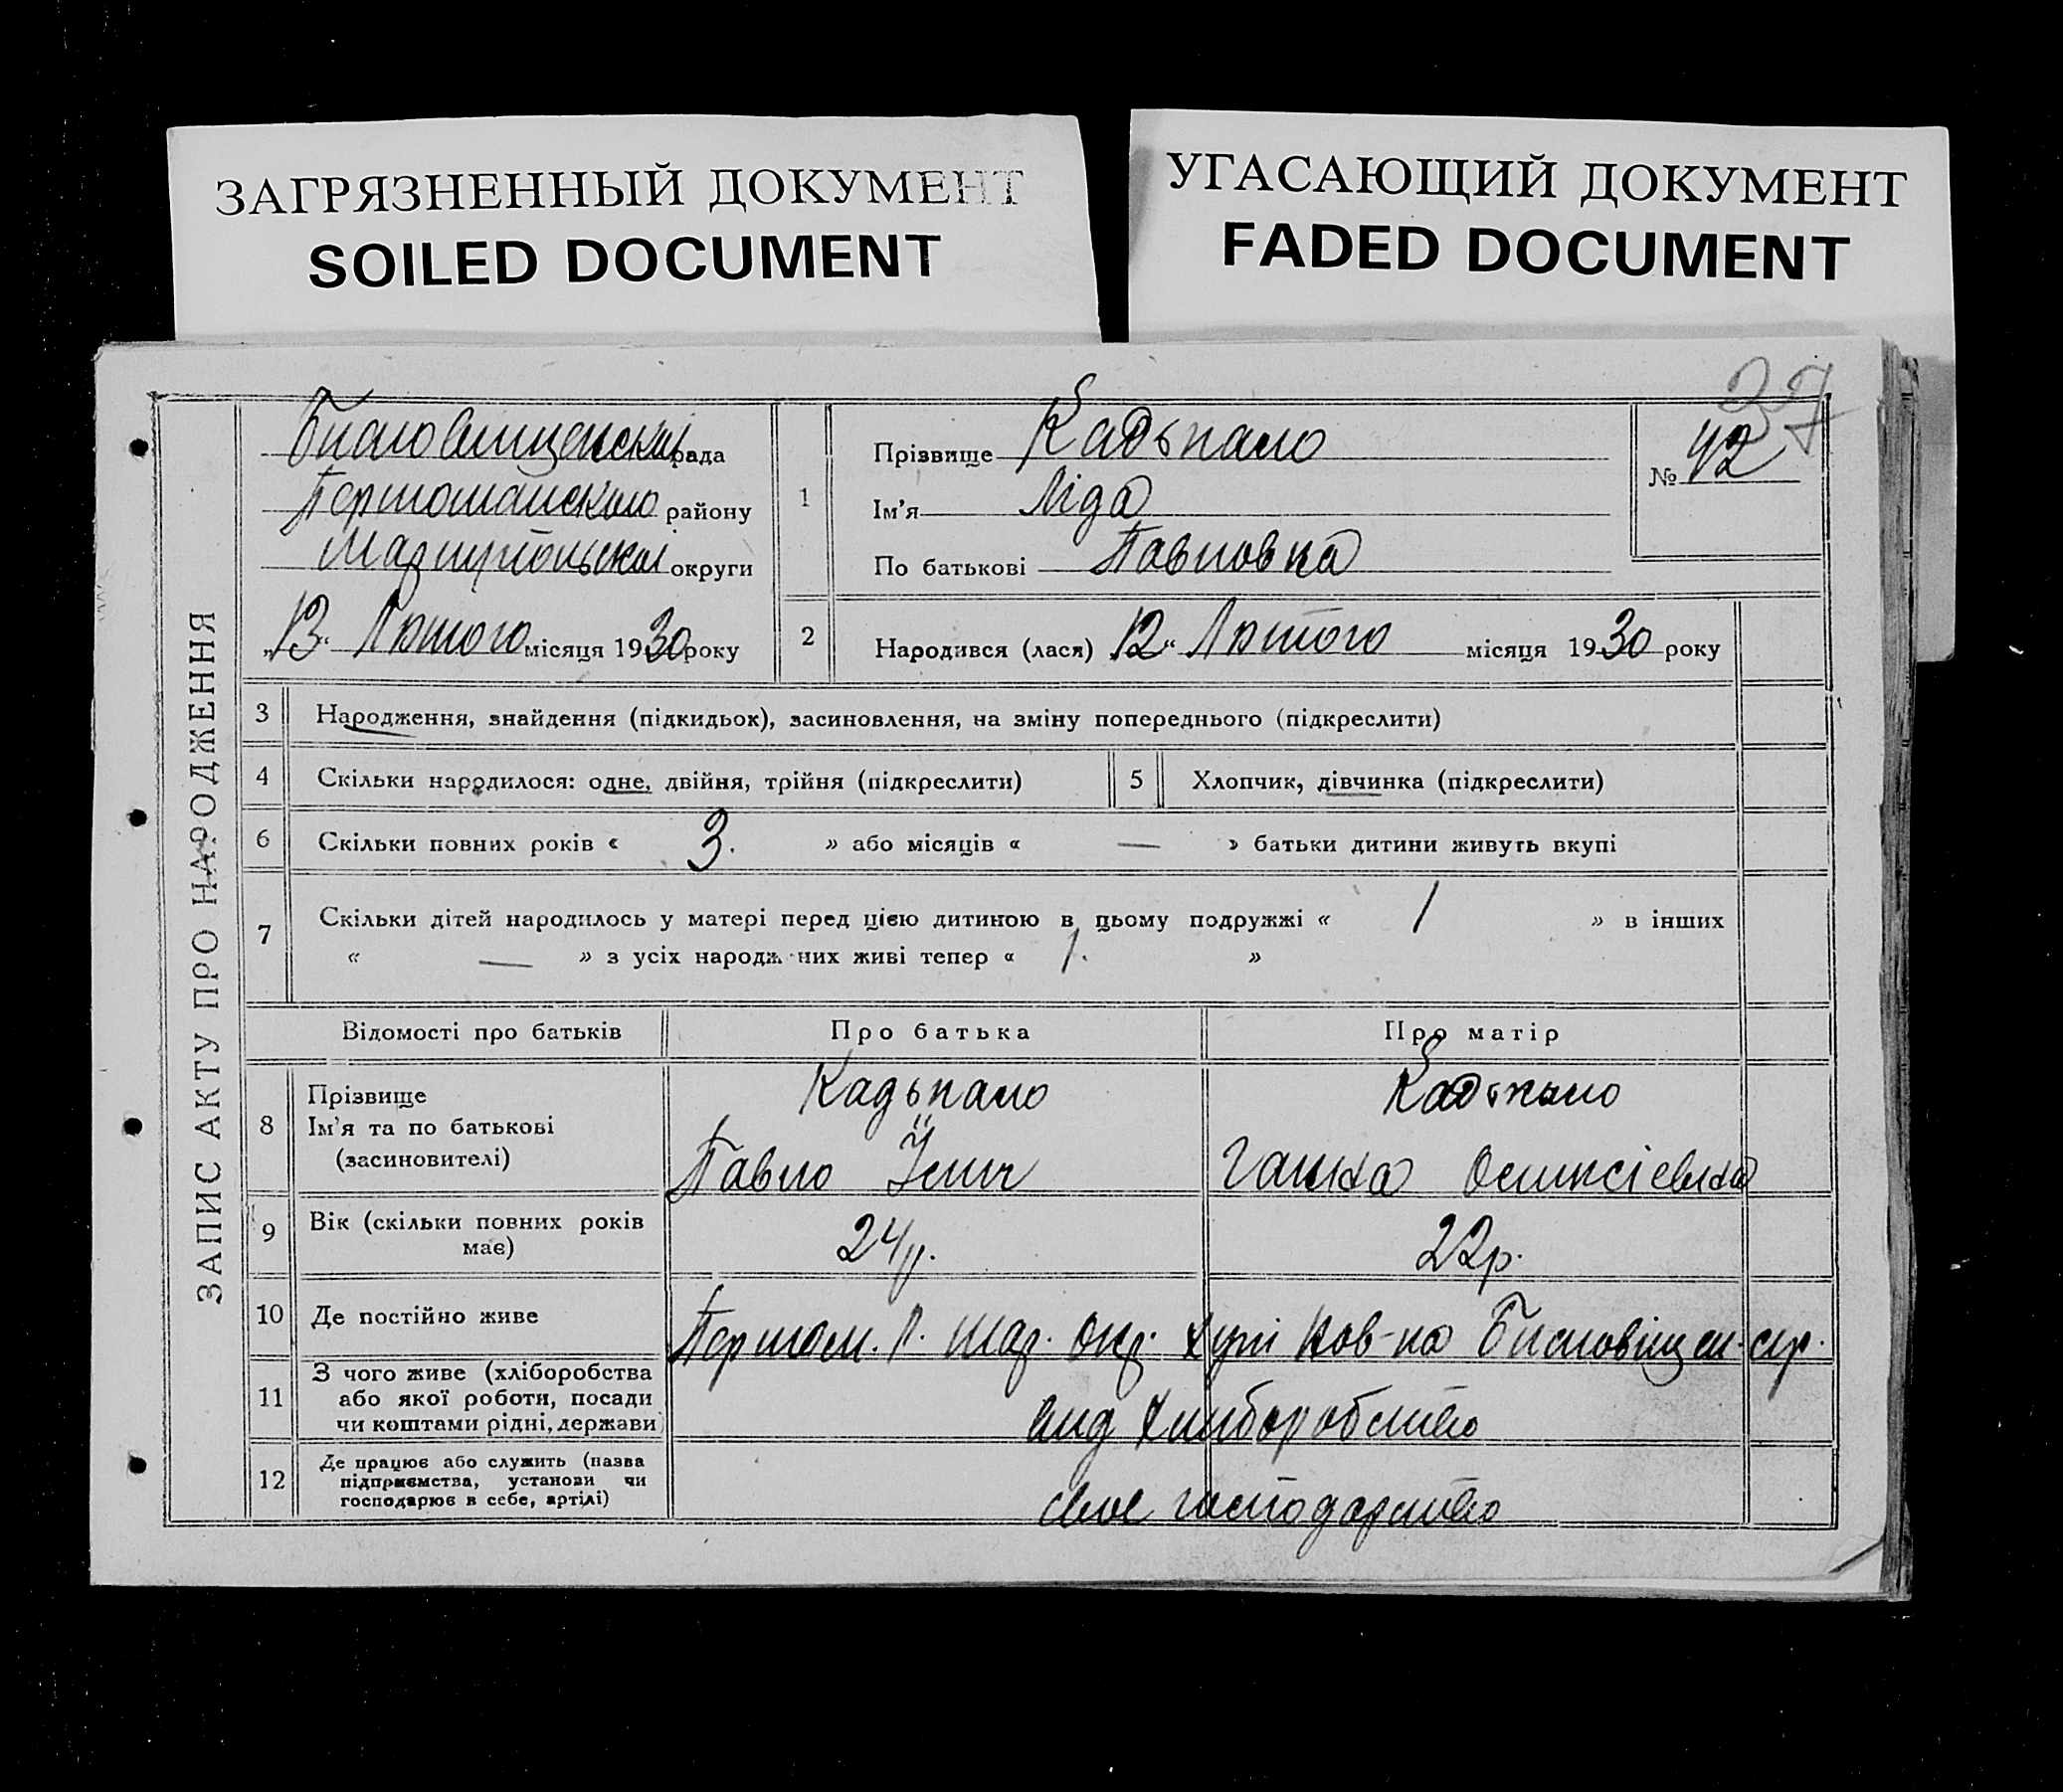 ЗАГРЯЗНЕННЫЙ ДОКУМЕНТ
SOILED DOCUMENT
УГАСАЮЩИЙ ДОКУМЕНТ
FADED DOCUMENT
37
ЗАПИС АКТУ ПРО НАРОДЖЕННЯ
рада
району
Маріупольської округи
„13“ Лютого місяця 1930 року
1
Прізвище Кадькало
Ім'я Ліда
По батькові Павловна
№ 42
2
Народився (лася) 12“ Лютого місяця 1930 року
3 Народження, знайдення (підкидьок), засиновлення, на зміну попереднього (підкреслити)
4 Скільки народилося: одне, двійня, трійня (підкреслити)
5 Хлопчик, дівчинка (підкреслити)
6 Скільки повних років « 3. » або місяців « — » батьки дитини живуть вкупі
7 Скільки дітей народилось у матері перед цією дитиною в цьому подружжі « 1 » в інших
« — » з усіх народж них живі тепер « 1. »
Відомості про батьків Про батька Про матір
8 Прізвище
Ім'я та по батькові
(засиновителі)
Кадькало
Павло
Кадькало
Ганна
9 Вік (скільки повних років
має)
24 р.
22 р.
10 Де постійно живе
11 З чого живе (хліборобства
або якої роботи, посади
чи коштами рідні, держави)
хліборобство
12 Де працює або служить (назва
підприємства, установи чи
господарює в себе, артілі)
своє господарство